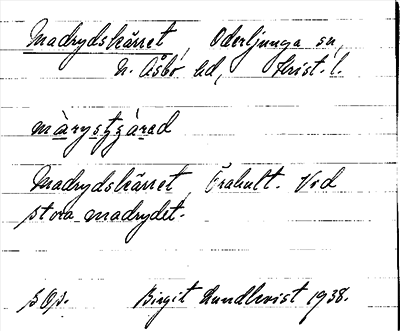 Madrydskärret, Oderljunga sn,
N. Åsbo hd, Krist. l.
màrystʒàrad
Madrydskärret, Örahult. Vid
stora madrydet.
s. Og. Birgit Lundkvist 1938.